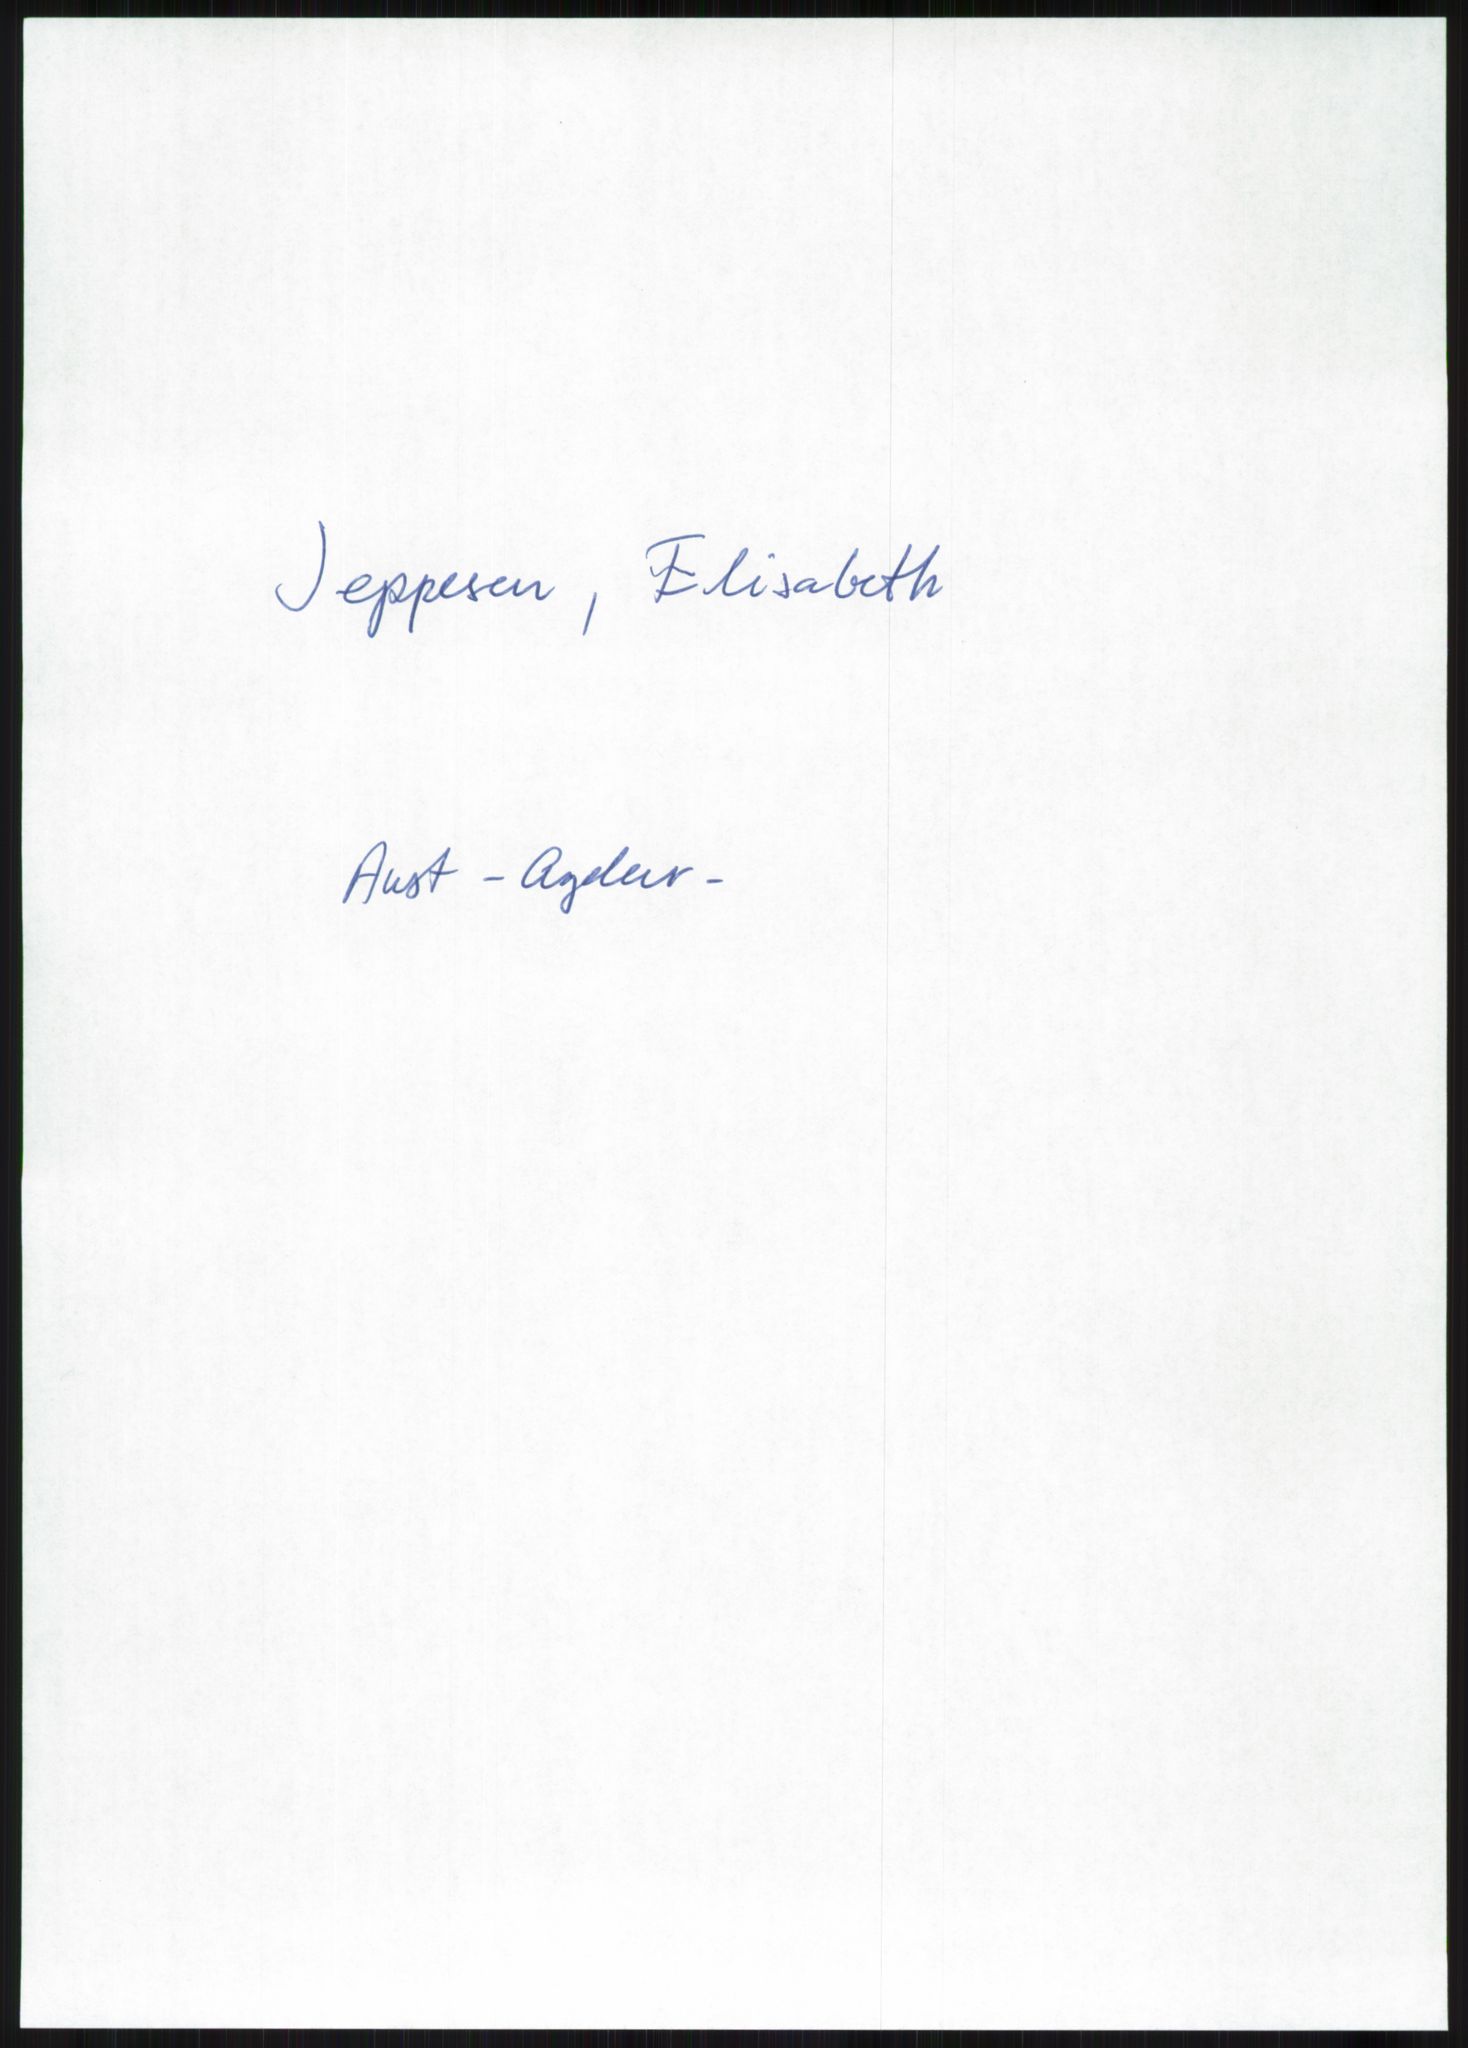 Jeppesen, Elisabeth
Aust - Agder -